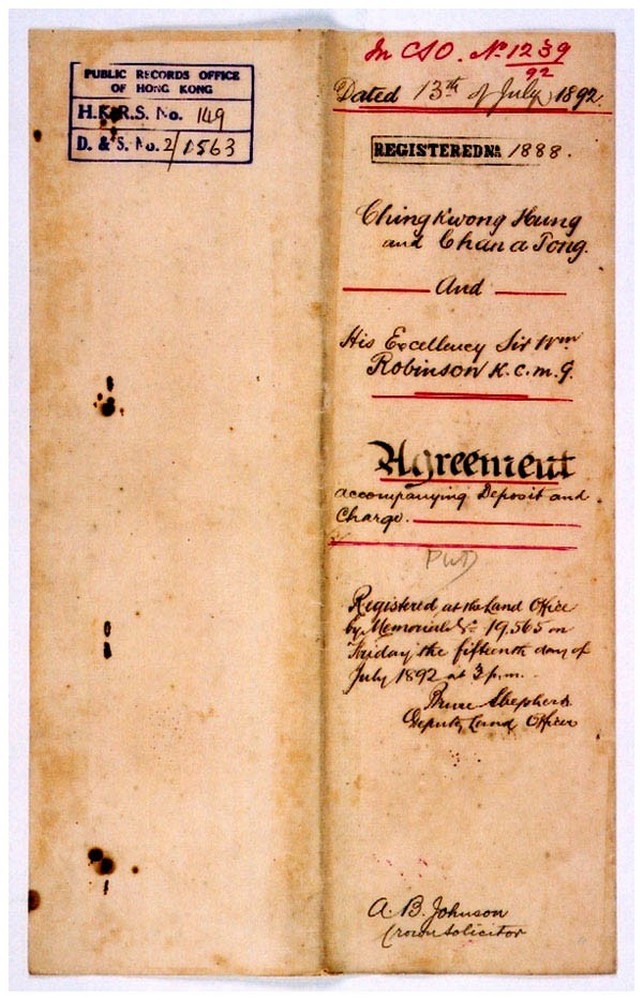 PUBLIC RECORDS OFFICE
OF HONG KONG
H.K.R.S. No. 149
D. & S. No. 2/1563
In CSO. No. 1239
92
Dated 13th of July 1892.
REGISTERED No. 1888.
Ching Kwong Hung
and Chan a Tong.
And
His Excellency Sir Wm
Robinson K.C.M.G.
Agreement
accompanying Deposit and
Charge.
PWD
Registered at the Land Office
by Memorial No. 19,565 on
Friday the fifteenth day of
July 1892 at 3 p.m.
Bruce Shepherd
Deputy Land Officer
A. B. Johnson
Crown Solicitor